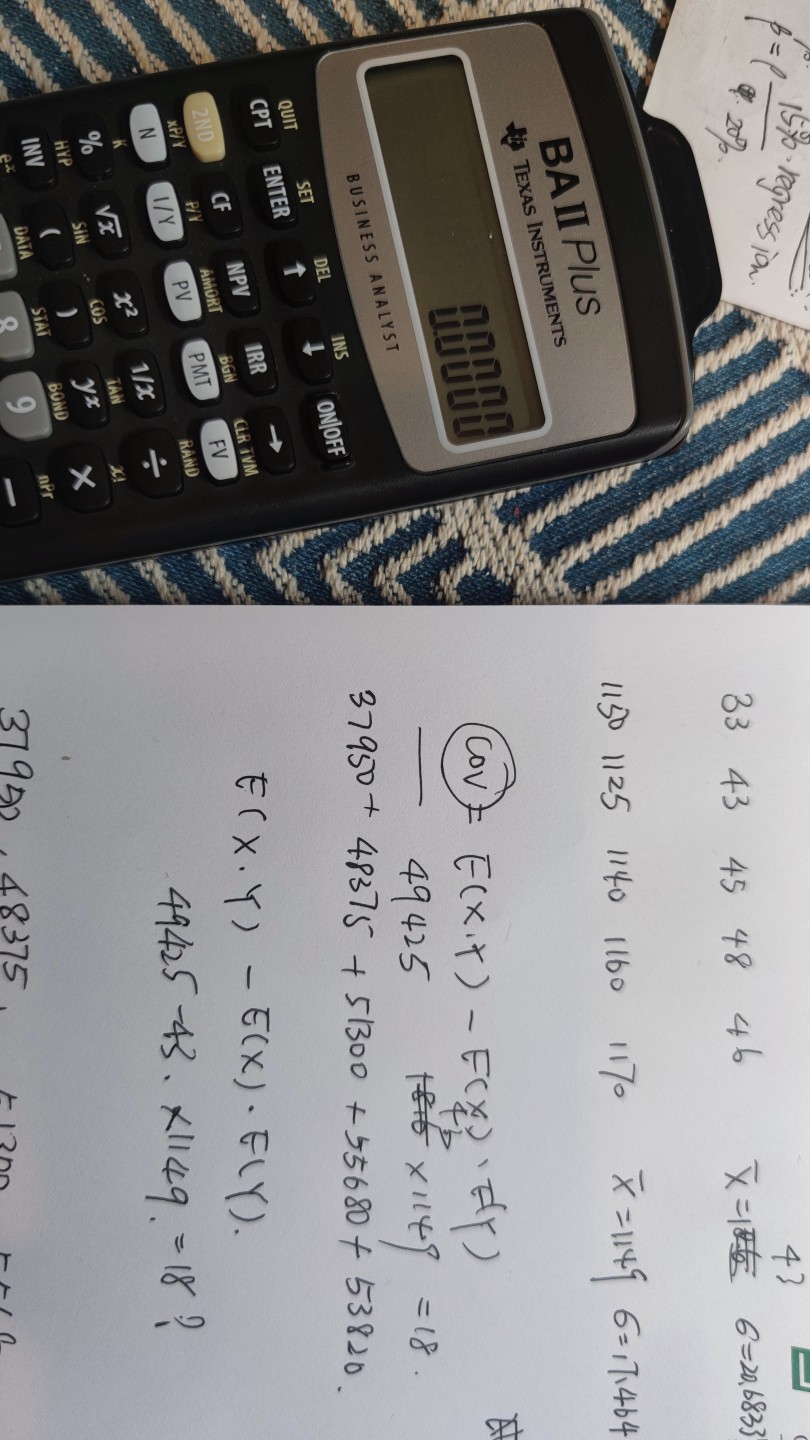 15%. regression.
β = ρ
20%.
BA II Plus
TEXAS INSTRUMENTS
BUSINESS ANALYST
QUIT SET DEL INS
CPT ENTER ↑ ↓ ON|OFF
2ND CF NPV IRR →
xP/Y P/Y AMORT BGN CLR TVM
N I/Y PV PMT FV
K RAND
% √x x² 1/x ÷
HYP SIN COS TAN x!
INV ( ) yˣ ×
eˣ DATA STAT BOND nPr
8 9 −
43
33 43 45 48 46 x̄ =
1150 1125 1140 1160 1170 x̄ = 1149 6 = 17.464
Cov = E(X.Y) − E(X). E(Y)
43
49425 × 1149 = 18.
37950 + 48375 + 51300 + 55680 + 53820.
E(X.Y) − E(X). E(Y).
49425 − 43. × 1149. = 18?
37950, 48375,